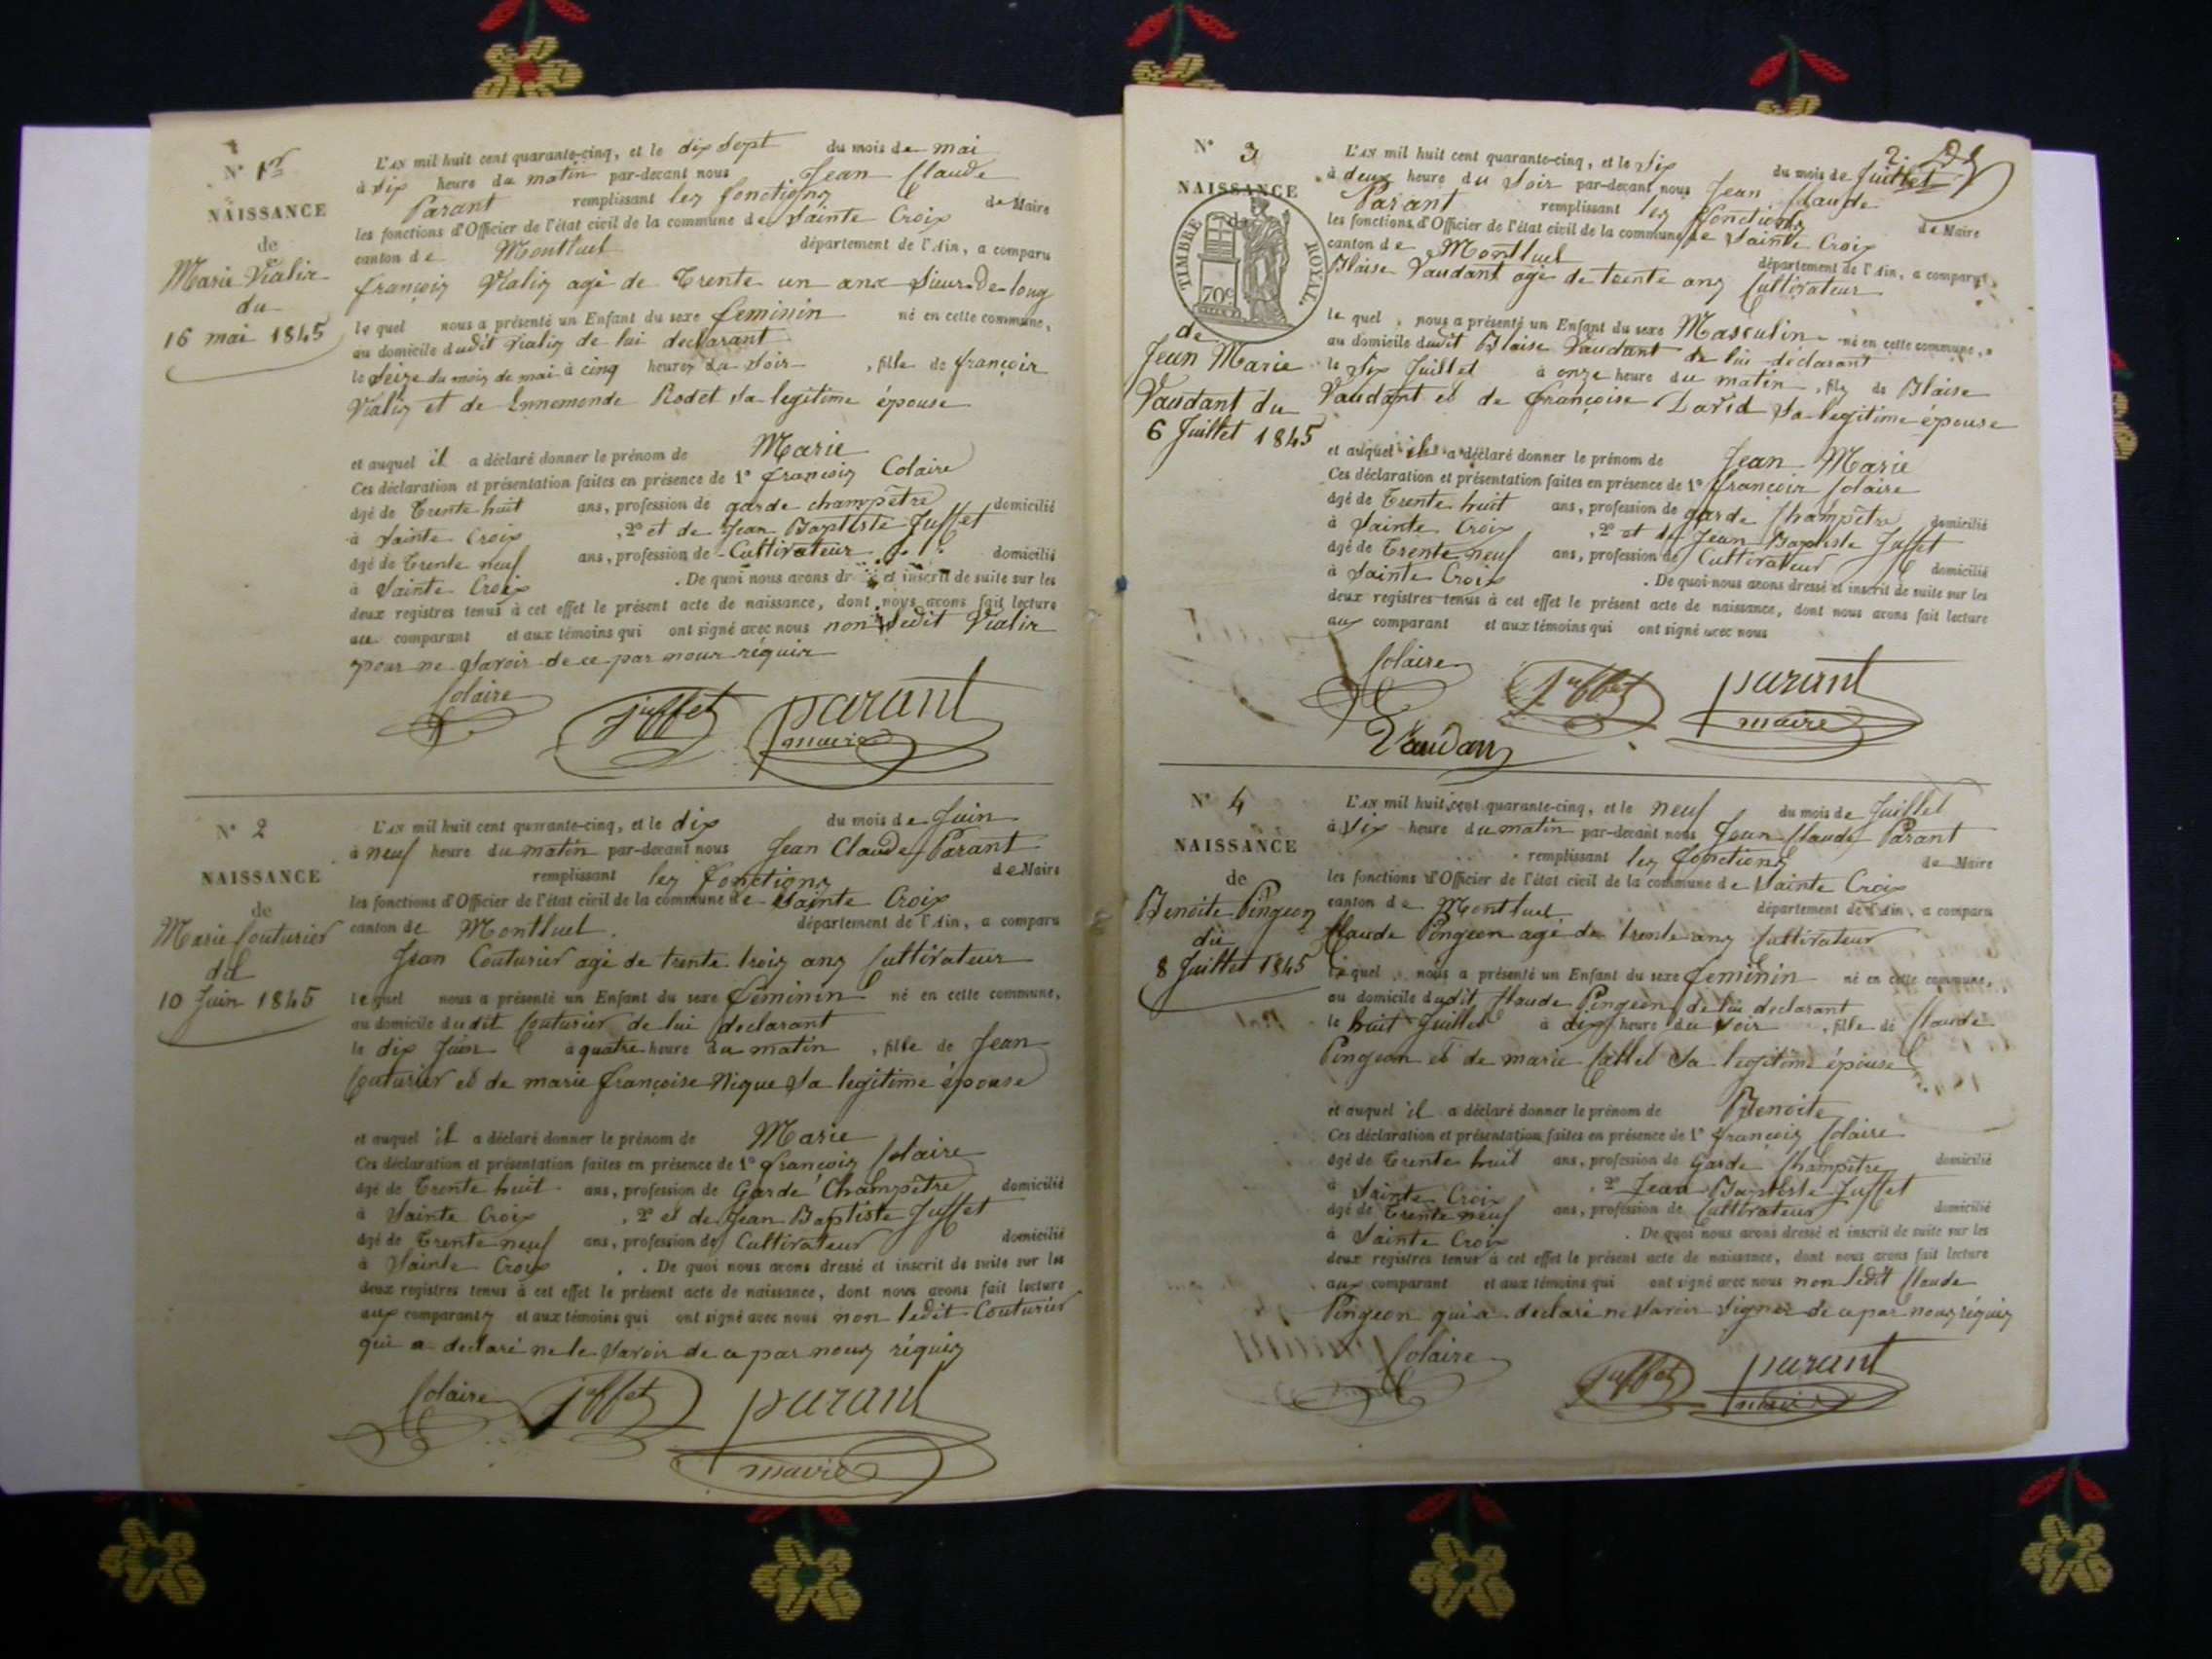 N° 1er
NAISSANCE
de
Marie Vialix
du
16 mai 1845
L'AN mil huit cent quarante-cinq, et le dix sept du mois de mai
à dix heure du matin par-devant nous Jean Claude
Parant remplissant les fonctions de Maire
les fonctions d'Officier de l'état civil de la commune de Sainte Croix
canton de Montluel département de l'Ain, a comparu
françois Vialix agé de Trente un ans
le quel nous a présenté un Enfant du sexe feminin né en cette commune,
au domicile dudit Vialix de lui declarant
le Seize du mois de mai à cinq heures du Soir, fille de françois
Vialix et de Ennemonde Rodet Sa legitime épouse
et auquel il a déclaré donner le prénom de Marie
Ces déclaration et présentation faites en présence de 1° françois Colaire
âgé de Trente huit ans, profession de garde champêtre domicilié
à Sainte Croix, 2° et de Jean Baptiste Juffet
âgé de Trente neuf ans, profession de Cultivateur domicilié
à Sainte Croix. De quoi nous avons dressé et inscrit de suite sur les
deux registres tenus à cet effet le présent acte de naissance, dont nous avons fait lecture
au comparant et aux témoins qui ont signé avec nous non Ledit Vialix
pour ne Savoir de ce par nous réquis
Colaire juffet parant
maire
N° 2
NAISSANCE
de
Marie Couturier
du
10 Juin 1845
L'AN mil huit cent quarante-cinq, et le dix du mois de Juin
à neuf heure du matin par-devant nous Jean Claude Parant
remplissant les fonctions de Maire
les fonctions d'Officier de l'état civil de la commune de Sainte Croix
canton de Montluel. département de l'Ain, a comparu
Jean Couturier agé de trente trois ans Cultivateur
lequel nous a présenté un Enfant du sexe feminin né en cette commune,
au domicile dudit Couturier de lui declarant
le dix Juin à quatre heure du matin, fille de Jean
Couturier et de marie françoise Nique Sa legitime épouse
et auquel il a déclaré donner le prénom de Marie
Ces déclaration et présentation faites en présence de 1° françois Colaire
âgé de Trente huit ans, profession de Garde Champêtre domicilié
à Sainte Croix, 2° et de Jean Baptiste Juffet
âgé de Trente neuf ans, profession de Cultivateur domicilié
à Sainte Croix. De quoi nous avons dressé et inscrit de suite sur les
deux registres tenus à cet effet le présent acte de naissance, dont nous avons fait lecture
aux comparants et aux témoins qui ont signé avec nous non ledit Couturier
qui a declaré ne le Savoir de ce par nous réquis
Colaire juffet parant
maire
2.
N° 3
NAISSANCE
TIMBRE ROYAL.
70c
de
Jean Marie
Vaudant du
6 Juillet 1845
L'AN mil huit cent quarante-cinq, et le Six du mois de Juillet
à deux heure du Soir par-devant nous Jean Claude
Parant remplissant les fonctions de Maire
les fonctions d'Officier de l'état civil de la commune de Sainte Croix
canton de Montluel département de l'Ain, a comparu
Blaise Vaudant agé de trente ans Cultivateur
le quel nous a présenté un Enfant du sexe Masculin né en cette commune,
au domicile dudit Blaise Vaudant de lui déclarant
le Six Juillet à onze heure du matin, fils de Blaise
Vaudant et de françoise David Sa legitime épouse
et auquel il a déclaré donner le prénom de Jean Marie
Ces déclaration et présentation faites en présence de 1° françois Colaire
âgé de Trente huit ans, profession de garde Champêtre domicilié
à Sainte Croix, 2° et de Jean Baptiste Juffet
âgé de Trente neuf ans, profession de Cultivateur domicilié
à Sainte Croix. De quoi nous avons dressé et inscrit de suite sur les
deux registres tenus à cet effet le présent acte de naissance, dont nous avons fait lecture
aux comparant et aux témoins qui ont signé avec nous
Colaire juffet parant
maire
Vaudan
N° 4
NAISSANCE
de
Benoite Pingeon
du
8 Juillet 1845
L'AN mil huit cent quarante-cinq, et le neuf du mois de Juillet
à Six heure du matin par-devant nous Jean Claude Parant
remplissant les fonctions de Maire
les fonctions d'Officier de l'état civil de la commune de Sainte Croix
canton de Montluel département de l'Ain, a comparu
Claude Pingeon agé de trente ans Cultivateur
lequel nous a présenté un Enfant du sexe feminin né en cette commune,
au domicile dudit Claude Pingeon de lui declarant
le huit Juillet à dix heure du Soir, fille de Claude
Pingeon et de marie Sa legitime épouse
et auquel il a déclaré donner le prénom de Benoite
Ces déclaration et présentation faites en présence de 1° françois Colaire
âgé de Trente huit ans, profession de Garde Champêtre domicilié
à Sainte Croix, 2° Jean Baptiste Juffet
âgé de Trente neuf ans, profession de Cultivateur domicilié
à Sainte Croix. De quoi nous avons dressé et inscrit de suite sur les
deux registres tenus à cet effet le présent acte de naissance, dont nous avons fait lecture
aux comparant et aux témoins qui ont signé avec nous non ledit Claude
Pingeon qui a declaré ne Savoir Signer de ce par nous réquis
Colaire juffet parant
maire